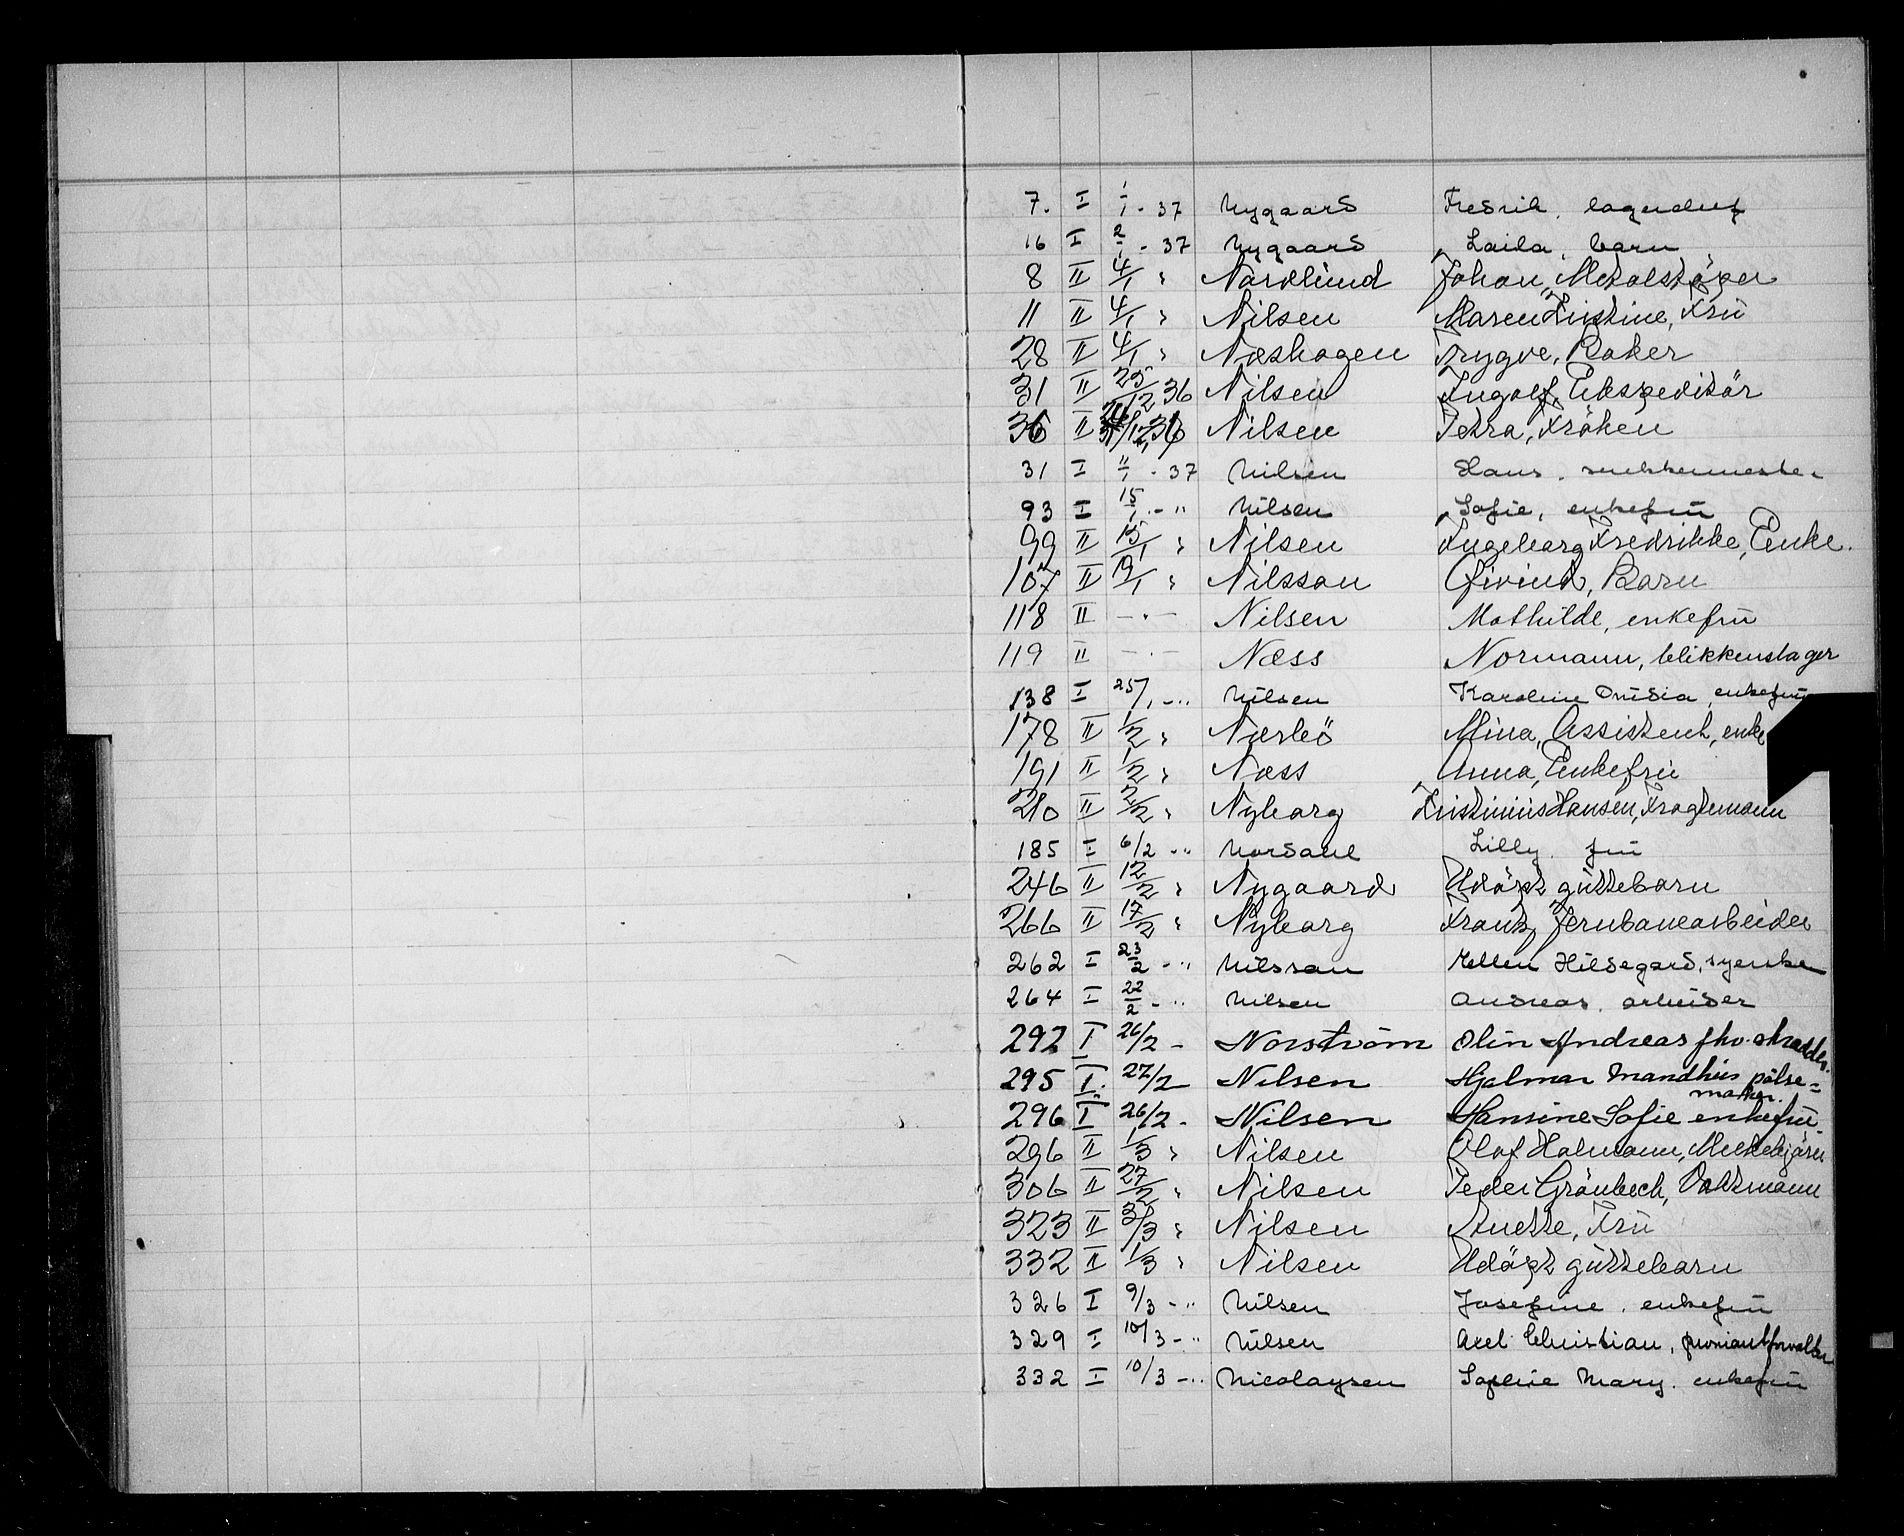 7. I 1/1 - 37 Nygaard Fredrik, lagerchef
16 I 2/1 - 37 Nygaard Laila, barn
8 II 4/1 " Nordlund Johan, Metalstöper
11 II 4/1 " Nilsen Maren Kristine, Frü
28 II 4/1 " Næshagen Trygve, Baker
31 II 25/12 36 Nilsen Ingolf, Ekspeditör
36 II 36 Nilsen Petra, Fröken
31 I 11/1 - 37 Nilsen Hans, snekkermester
93 I 15/1 - " Nilsen Sofie, enkefrü
99 II 15/1 " Nilsen Ingeborg Fredrikke, Enke.
107 II 19/1 " Nilsson Eivind, Barn
118 II - " - Nilsen Mathilde, enkefrü
119 II - " - Næss Normann, blikkenslager
138 I 25/1 - " Nilsen Karoline Ovidia, enkefrü
178 II 1/2 " Nærbö Mina, Assistent, enke
191 II 1/2 " Næss Anna, Enkefrü
210 II 2/2 " Nyborg Kristinius Hansen, Fragtemann
185 I 6/2 - " Nordahl Lilly, frü
246 II 12/2 " Nygaard Udöpt güttebarn
266 II 17/2 " Nyborg Frantz, Jernbanearbeider
262 I 23/2 - " Nilsson Hellen Hildegard, syerske
264 I 22/2 - " Nilsen Andreas, arbeider
292 I 26/2 - Norström Olin Andreas fhv. skredder.
295 I. 27/2 Nilsen Hjalmar Mandhüs pölse=
maker.
296 I 26/2 - Nilsen Hansine Sofie enkefrü.
296 II 1/3 " Nilsen Olaf Halmann,
306 II 27/2 " Nilsen Peder Grönbech, Vaktmann
323 II 3/3 " Nilsen Anette, Frü
332 II 1/3 " Nilsen Udöpt güttebarn
326 I 9/3 - " Nilsen Josefine, enkefrü
329 I 10/3 - " Nilsen Axel Christian, proviantforvalter
332 I 10/3 - " Nicolaysen Sophie Mary, enkefrü